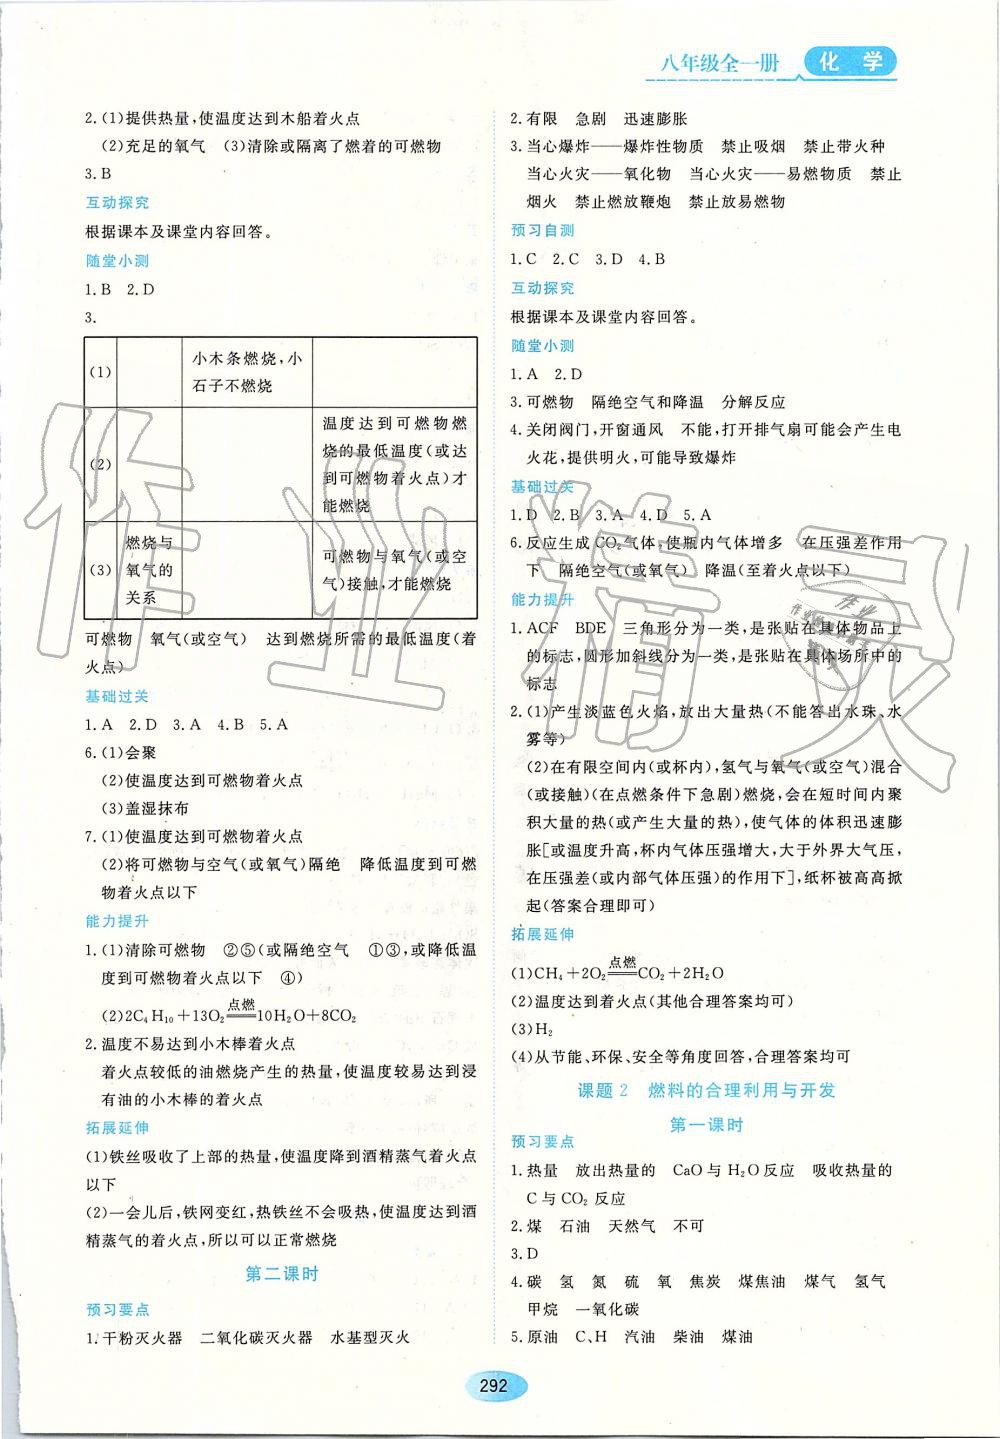 八年级全一册 化 学
2.(1)提供热量,使温度达到木船着火点
(2)充足的氧气 (3)清除或隔离了燃着的可燃物
3.B
互动探究
根据课本及课堂内容回答。
随堂小测
1.B 2.D
3.
(1) 小木条燃烧,小
石子不燃烧
(2) 温度达到可燃物燃
烧的最低温度(或达
到可燃物着火点)才
能燃烧
(3) 燃烧与
氧气的
关系
可燃物与氧气(或空
气)接触,才能燃烧
可燃物 氧气(或空气) 达到燃烧所需的最低温度(着
火点)
基础过关
1.A 2.D 3.A 4.B 5.A
6.(1)会聚
(2)使温度达到可燃物着火点
(3)盖湿抹布
7.(1)使温度达到可燃物着火点
(2)将可燃物与空气(或氧气)隔绝 降低温度到可燃
物着火点以下
能力提升
1.(1)清除可燃物 ②⑤(或隔绝空气 ①③,或降低温
度到可燃物着火点以下 ④)
(2)2C₄H₁₀+13O₂ 点燃══ 10H₂O+8CO₂
2.温度不易达到小木棒着火点
着火点较低的油燃烧产生的热量,使温度较易达到浸
有油的小木棒的着火点
拓展延伸
(1)铁丝吸收了上部的热量,使温度降到酒精蒸气着火点
以下
(2)一会儿后,铁网变红,热铁丝不会吸热,使温度达到酒
精蒸气的着火点,所以可以正常燃烧
第二课时
预习要点
1.干粉灭火器 二氧化碳灭火器 水基型灭火
2.有限 急剧 迅速膨胀
3.当心爆炸——爆炸性物质 禁止吸烟 禁止带火种
当心火灾——氧化物 当心火灾——易燃物质 禁止
烟火 禁止燃放鞭炮 禁止放易燃物
预习自测
1.C 2.C 3.D 4.B
互动探究
根据课本及课堂内容回答。
随堂小测
1.A 2.D
3.可燃物 隔绝空气和降温 分解反应
4.关闭阀门,开窗通风 不能,打开排气扇可能会产生电
火花,提供明火,可能导致爆炸
基础过关
1.D 2.B 3.A 4.D 5.A
6.反应生成CO₂气体,使瓶内气体增多 在压强差作用
下 隔绝空气(或氧气) 降温(至着火点以下)
能力提升
1.ACF BDE 三角形分为一类,是张贴在具体物品上
的标志,圆形加斜线分为一类,是张贴在具体场所中的
标志
2.(1)产生淡蓝色火焰,放出大量热(不能答出水珠、水
雾等)
(2)在有限空间内(或杯内),氢气与氧气(或空气)混合
(或接触)(在点燃条件下急剧)燃烧,会在短时间内聚
积大量的热(或产生大量的热),使气体的体积迅速膨
胀[或温度升高,杯内气体压强增大,大于外界大气压,
在压强差(或内部气体压强)的作用下],纸杯被高高掀
起(答案合理即可)
拓展延伸
(1)CH₄+2O₂ 点燃══ CO₂+2H₂O
(2)温度达到着火点(其他合理答案均可)
(3)H₂
(4)从节能、环保、安全等角度回答,合理答案均可
课题2 燃料的合理利用与开发
第一课时
预习要点
1.热量 放出热量的 CaO与H₂O反应 吸收热量的
C与CO₂反应
2.煤 石油 天然气 不可
3.D
4.碳 氢 氮 硫 氧 焦炭 煤焦油 煤气 氢气
甲烷 一氧化碳
5.原油 C、H 汽油 柴油 煤油
292
作业精灵